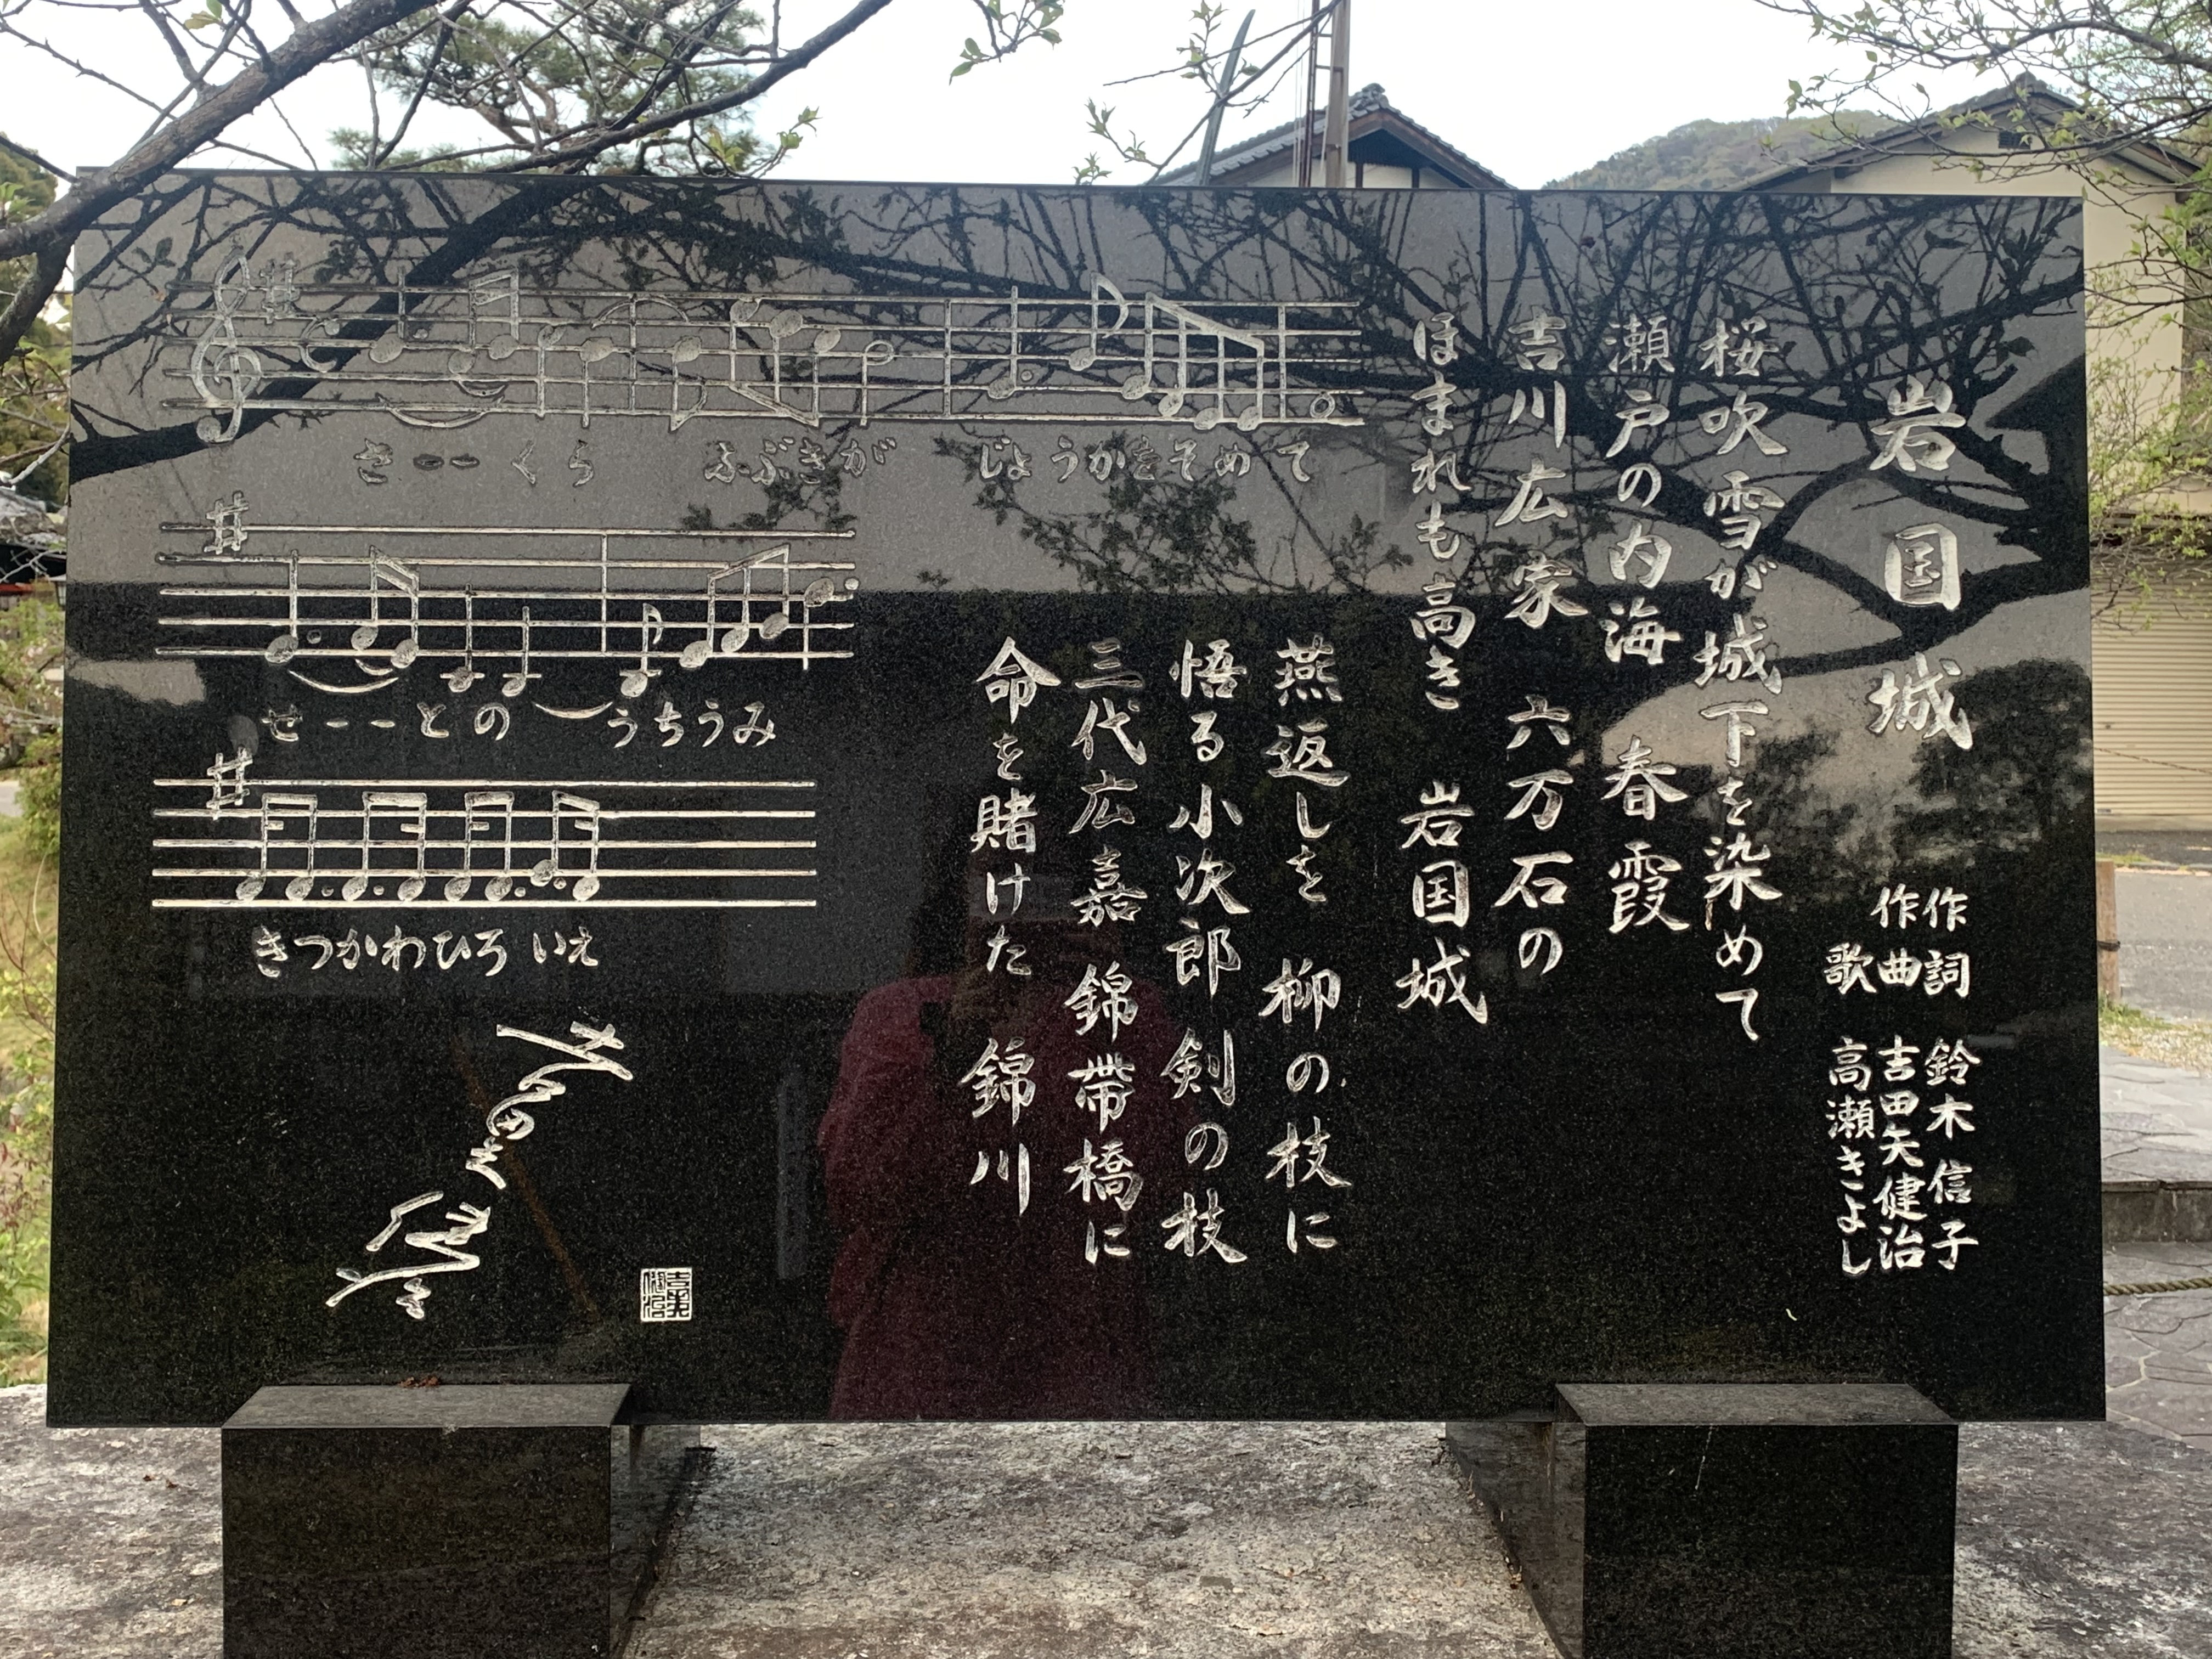 岩国城
作詞 鈴木信子
作曲 吉田矢健治
歌 高瀬きよし
桜吹雪が城下を染めて
瀬戸の内海 春霞
吉川広家 六万石の
ほまれも高き 岩国城
燕返しを 柳の枝に
悟る小次郎 剣の枝
三代広嘉 錦帯橋に
命を賭けた 錦川
さーーくら ふぶきが じょうかをそめて
せーーとの うちうみ
きつかわひろいえ